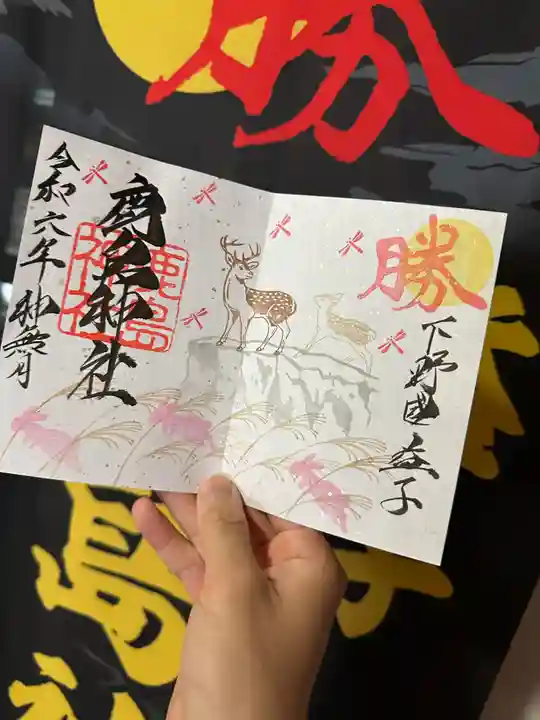 勝
勝
下野國 益子
鹿島神社
鹿島神社
令和六年 神無月
島